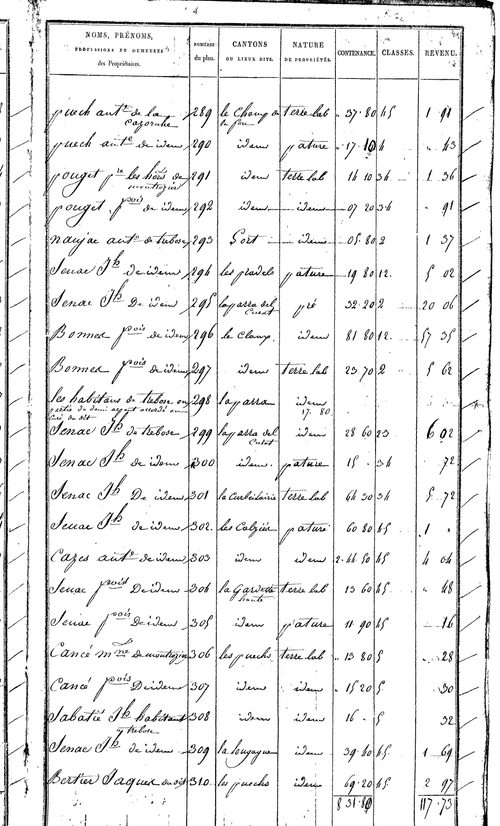 4
NOMS, PRÉNOMS, PROFESSIONS ET DEMEURES des Propriétaires. NUMÉROS du plan. CANTONS OU LIEUX DITS. NATURE DE PROPRIÉTÉS. CONTENANCE. CLASSES. REVENU.
puech ant.e de la cazornhe 289 le Champ de terre lab " 37.80 45 1 91
puech ant.e de idem 290 idem pature " 17.10 4 " 43
pouget p.re les hérs de montezier 291 idem terre lab 14 10 34 1 36
pouget fçois de idem 292 idem idem 07 20 34 " 91
naujac ant.e de trebose 293 Gort idem 05.80 2 1 37
Senac Jh de idem 294 les pradels pature 19 80 12. 5 02
Senac Jh De idem 295 laparra del Curat pré 32.20 2 20 06
Bonnes fçois de idem 296 le Clamp idem 81 80 12 57 35
Bonnes fçois de idem 297 idem terre lab 23 70 2 5 62
les habitans de trebose ou 298 laparra idem
17. 80
Senac Jh de trebose 299 laparra del Curat idem 28 60 23 6 02
Senac Jh de idem 300 idem. pature 15 . 34 72
Senac Jh De idem 301 terre lab 64 30 34 5 72
Senac Jh de idem 302. les Calzier pature 60 80 45 1 "
Cazes ant.e de idem 303 idem idem 2.44 50 45 4 04
Senac fçois De idem 304 la Gardette haute terre lab 13 60 45 " 48
Senac fçois De idem 305 idem pature 11 90 45 16
Cancé m.ne de montezier 306 les puechs terre lab " 13 80 5 " 28
Cancé fçois De idem 307 idem idem " 15 20 5 30
Sabatié Jh habitant trebose 308 idem idem 16 " 5 32
Senac Jh de idem 309 idem 39.60 45 1 69
Bertier Jaques 310. les puechs idem 69.20 45 2 97
831.80 117.73